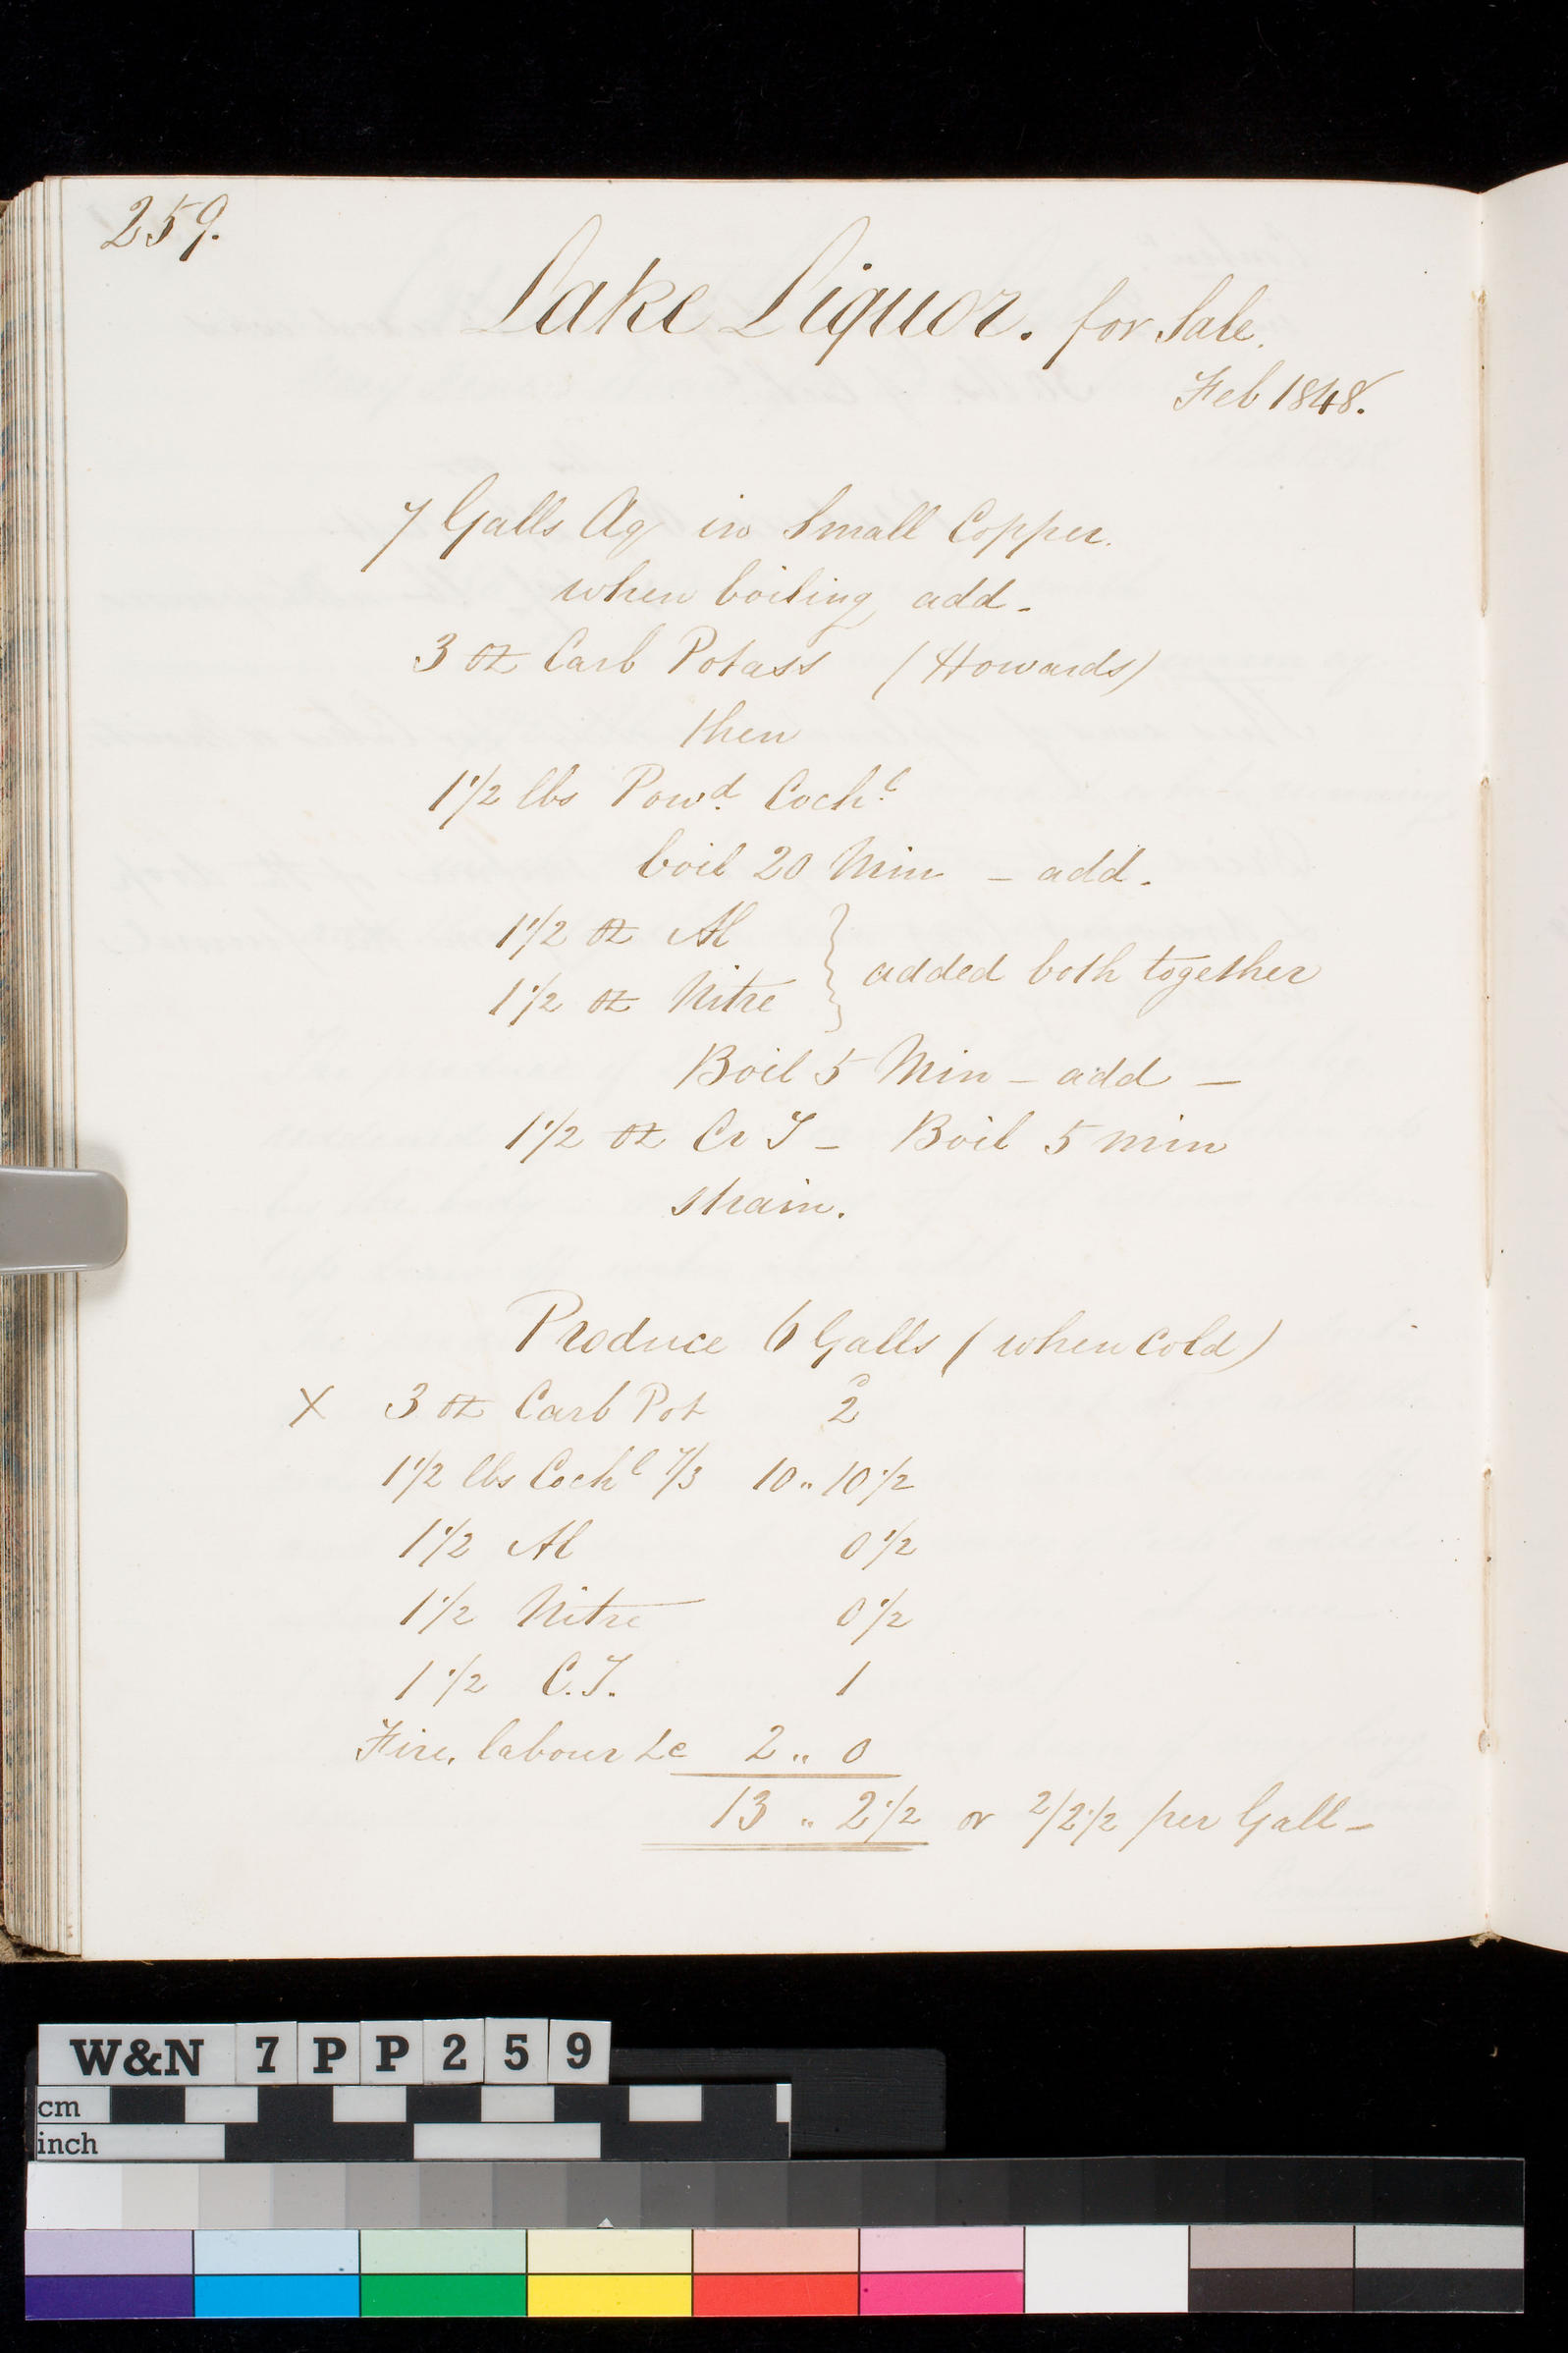 259.
Lake Liquor. for Sale.
Feb 1848.
7 Galls Aq in Small Copper.
when boiling add -
3 oz Carb Potass (Howards)
then
1 1/2 lbs Powd. Cochl.
boil 20 Min - add.
1 1/2 oz Al
1 1/2 oz Nitre } added both together
Boil 5 Min - add -
1 1/2 oz Cr T - Boil 5 min
strain.
Produce 6 Galls (when cold)
X 3 oz Carb Pot 2
1 1/2 lbs Cochl 7/3 10 " 10 1/2
1 1/2 Al 0 1/2
1 1/2 Nitre 0 1/2
1 1/2 C.T. 1
Fire, labour &c 2 " 0
13 " 2 1/2 or 2/2 1/2 per Gall -
W&N 7PP259
cm
inch